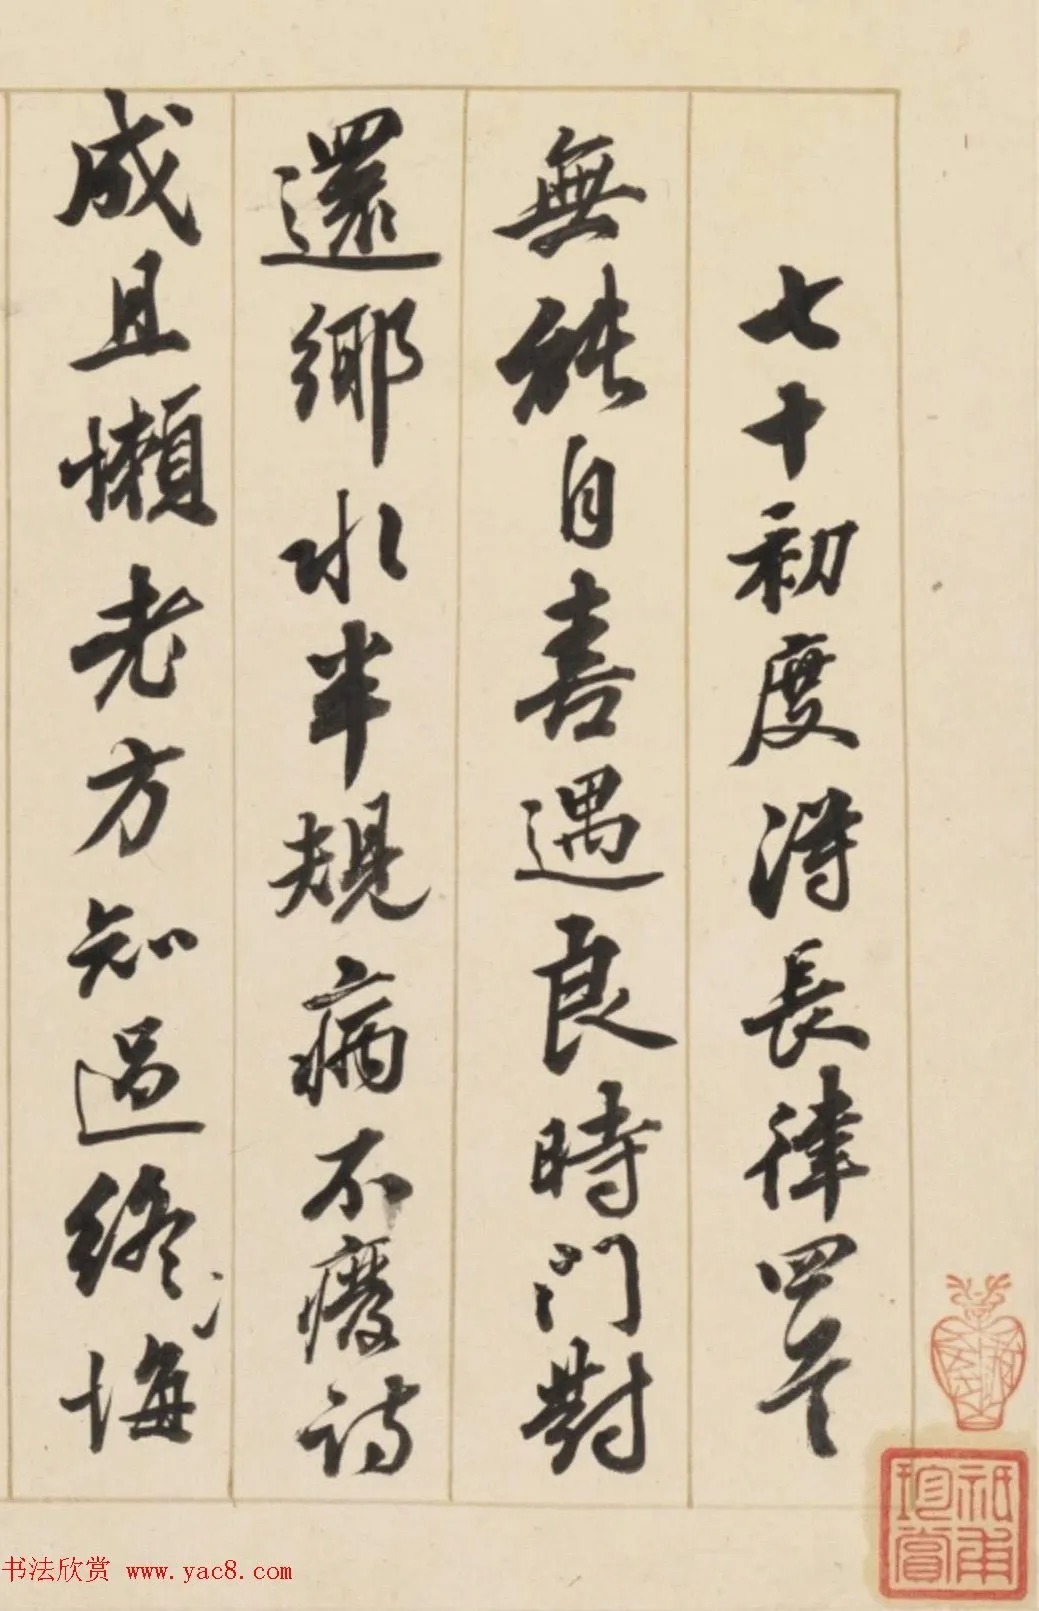 七十初度得長律四首
無能自喜遇良時門對
還鄉水半規病不廢詩
成且懶老方知過終
悔
書法欣赏 www.yac8.com
珍賞